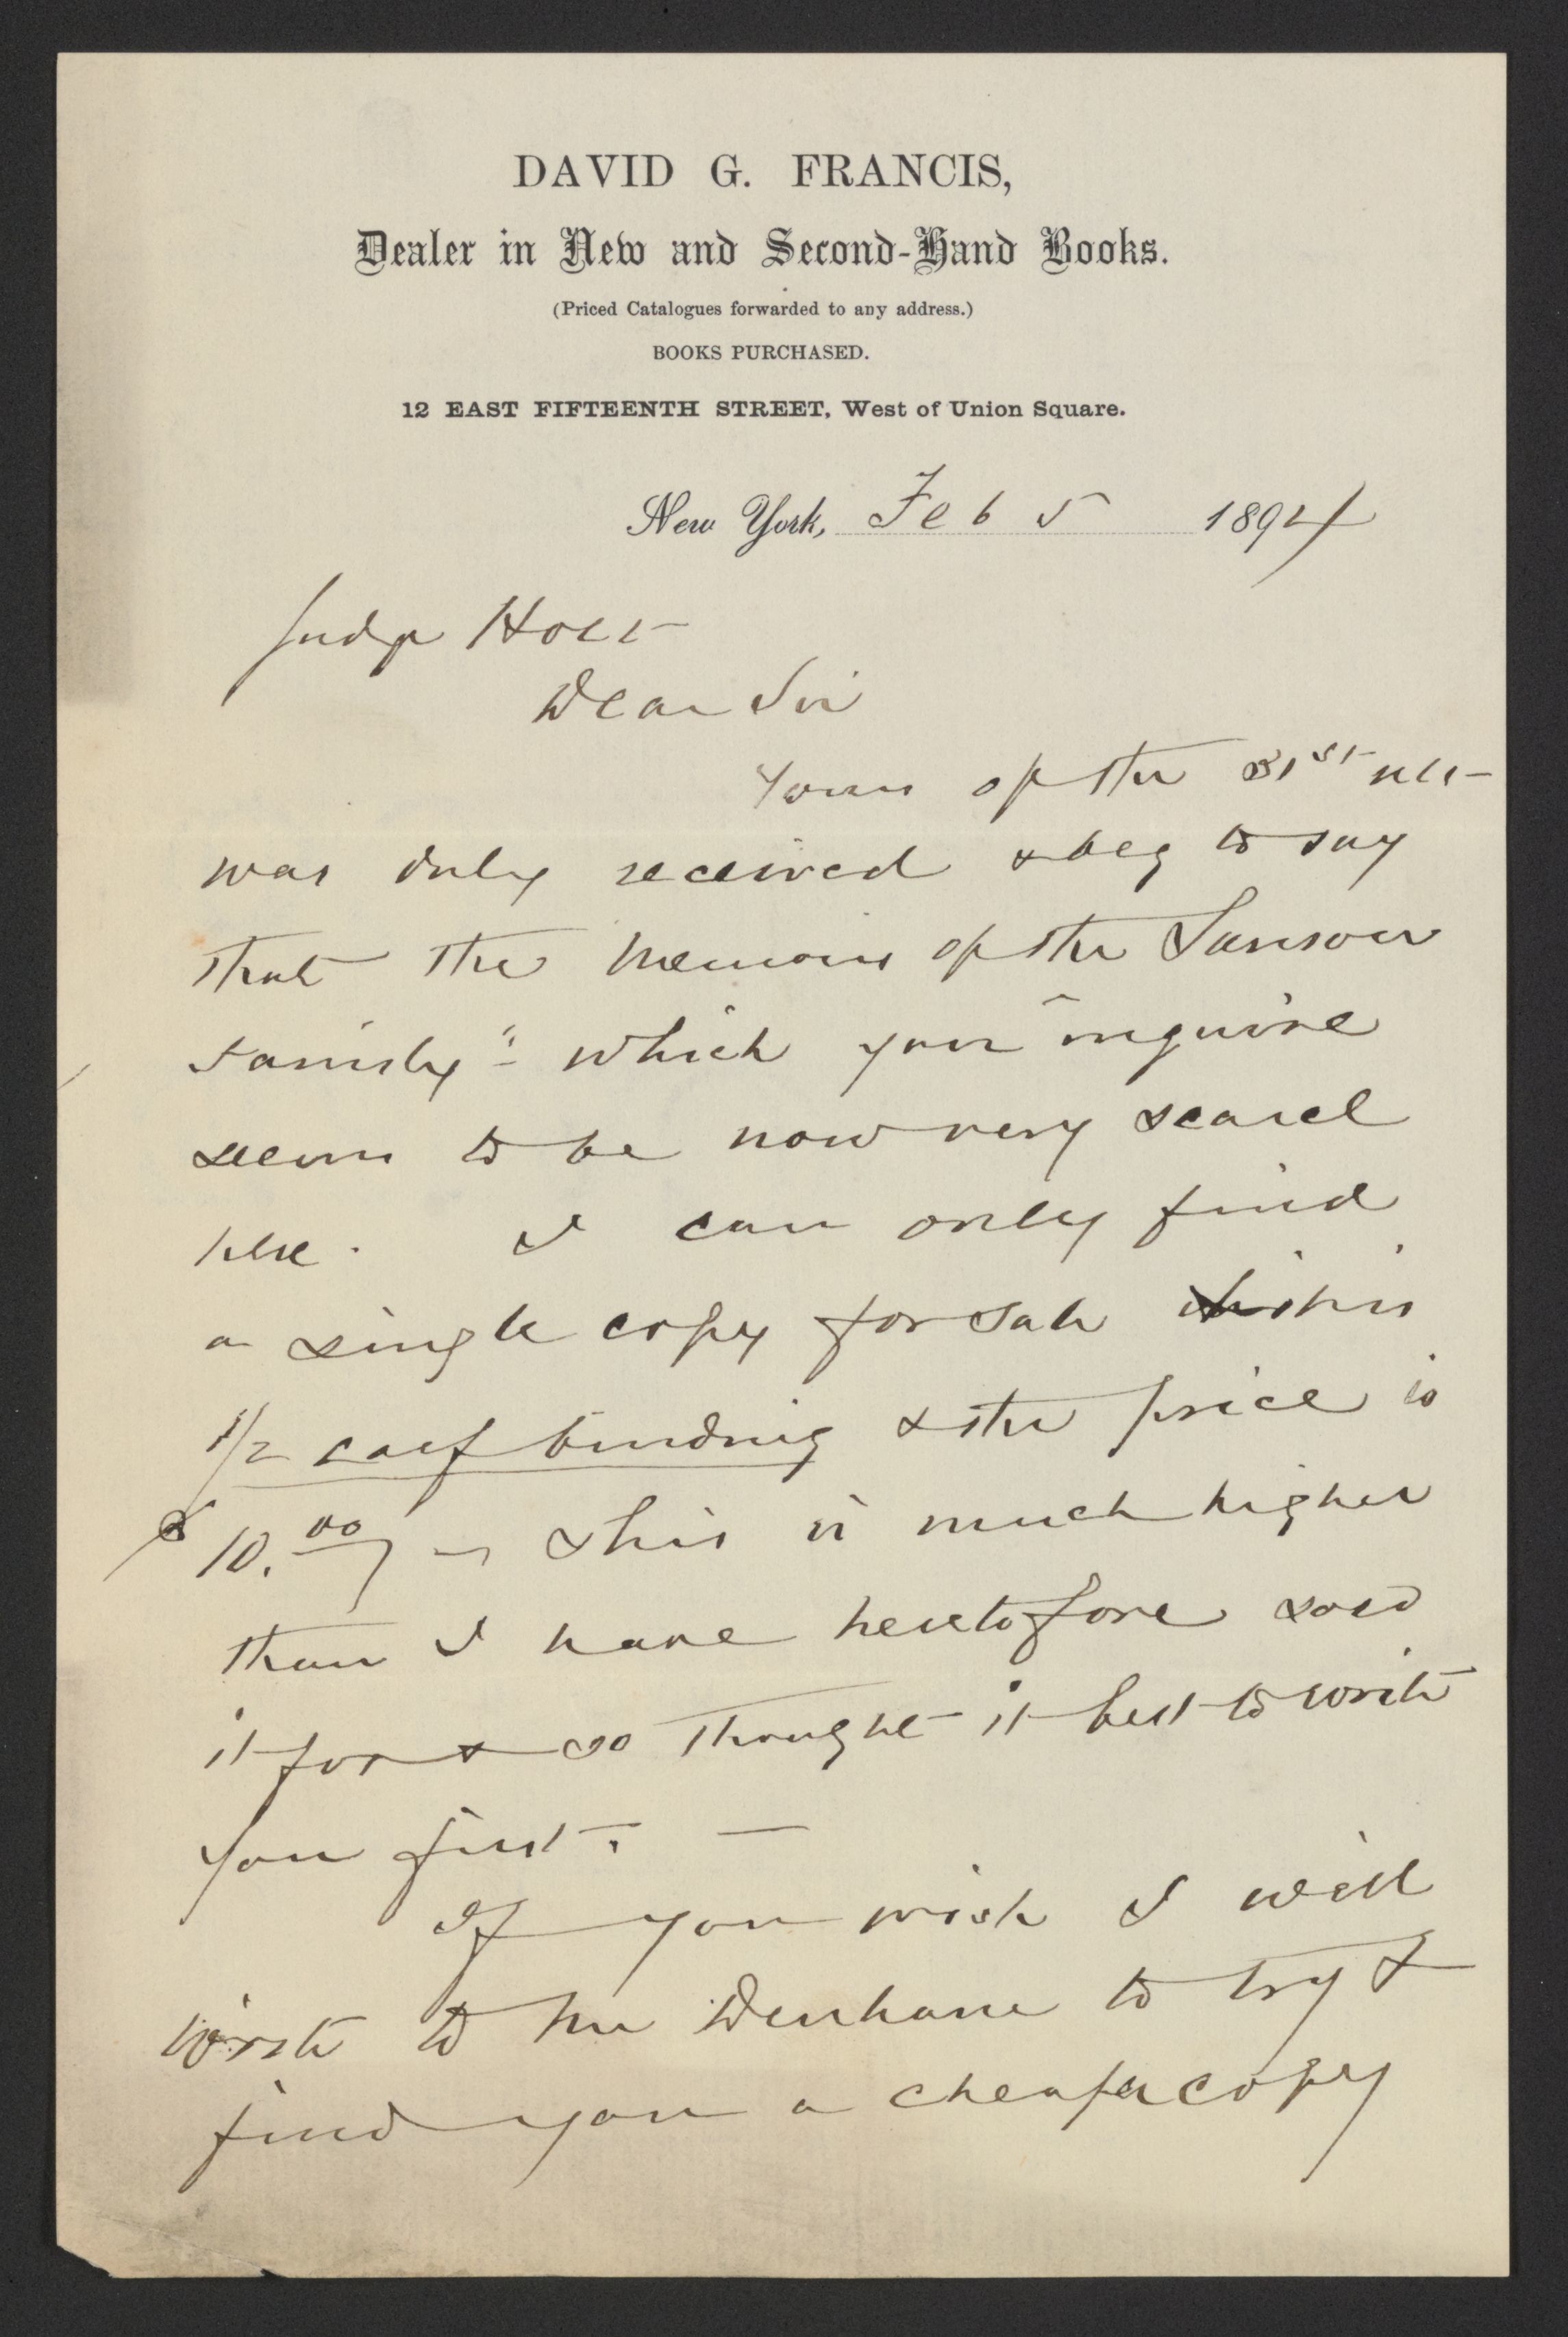 DAVID G. FRANCIS,
Dealer in New and Second-Hand Books.
(Priced Catalogues forwarded to any address.)
BOOKS PURCHASED.
12 EAST FIFTEENTH STREET, West of Union Square.
New York, Feb 5 1894
Judge Holt
Dear Sir
Yours of the 31st ult
was duly received & beg to say
that the Memoirs of the Sanson
Family" which you inquire
seems to be now very scarce
here. I can only find
a single copy for sale this is
1/2 calf binding & the price is
$10.00 - This is much higher
than I have heretofore sold
it for & so thought it best to write
you first. —
If you wish I will
write to Mr to try &
find you a cheaper copy